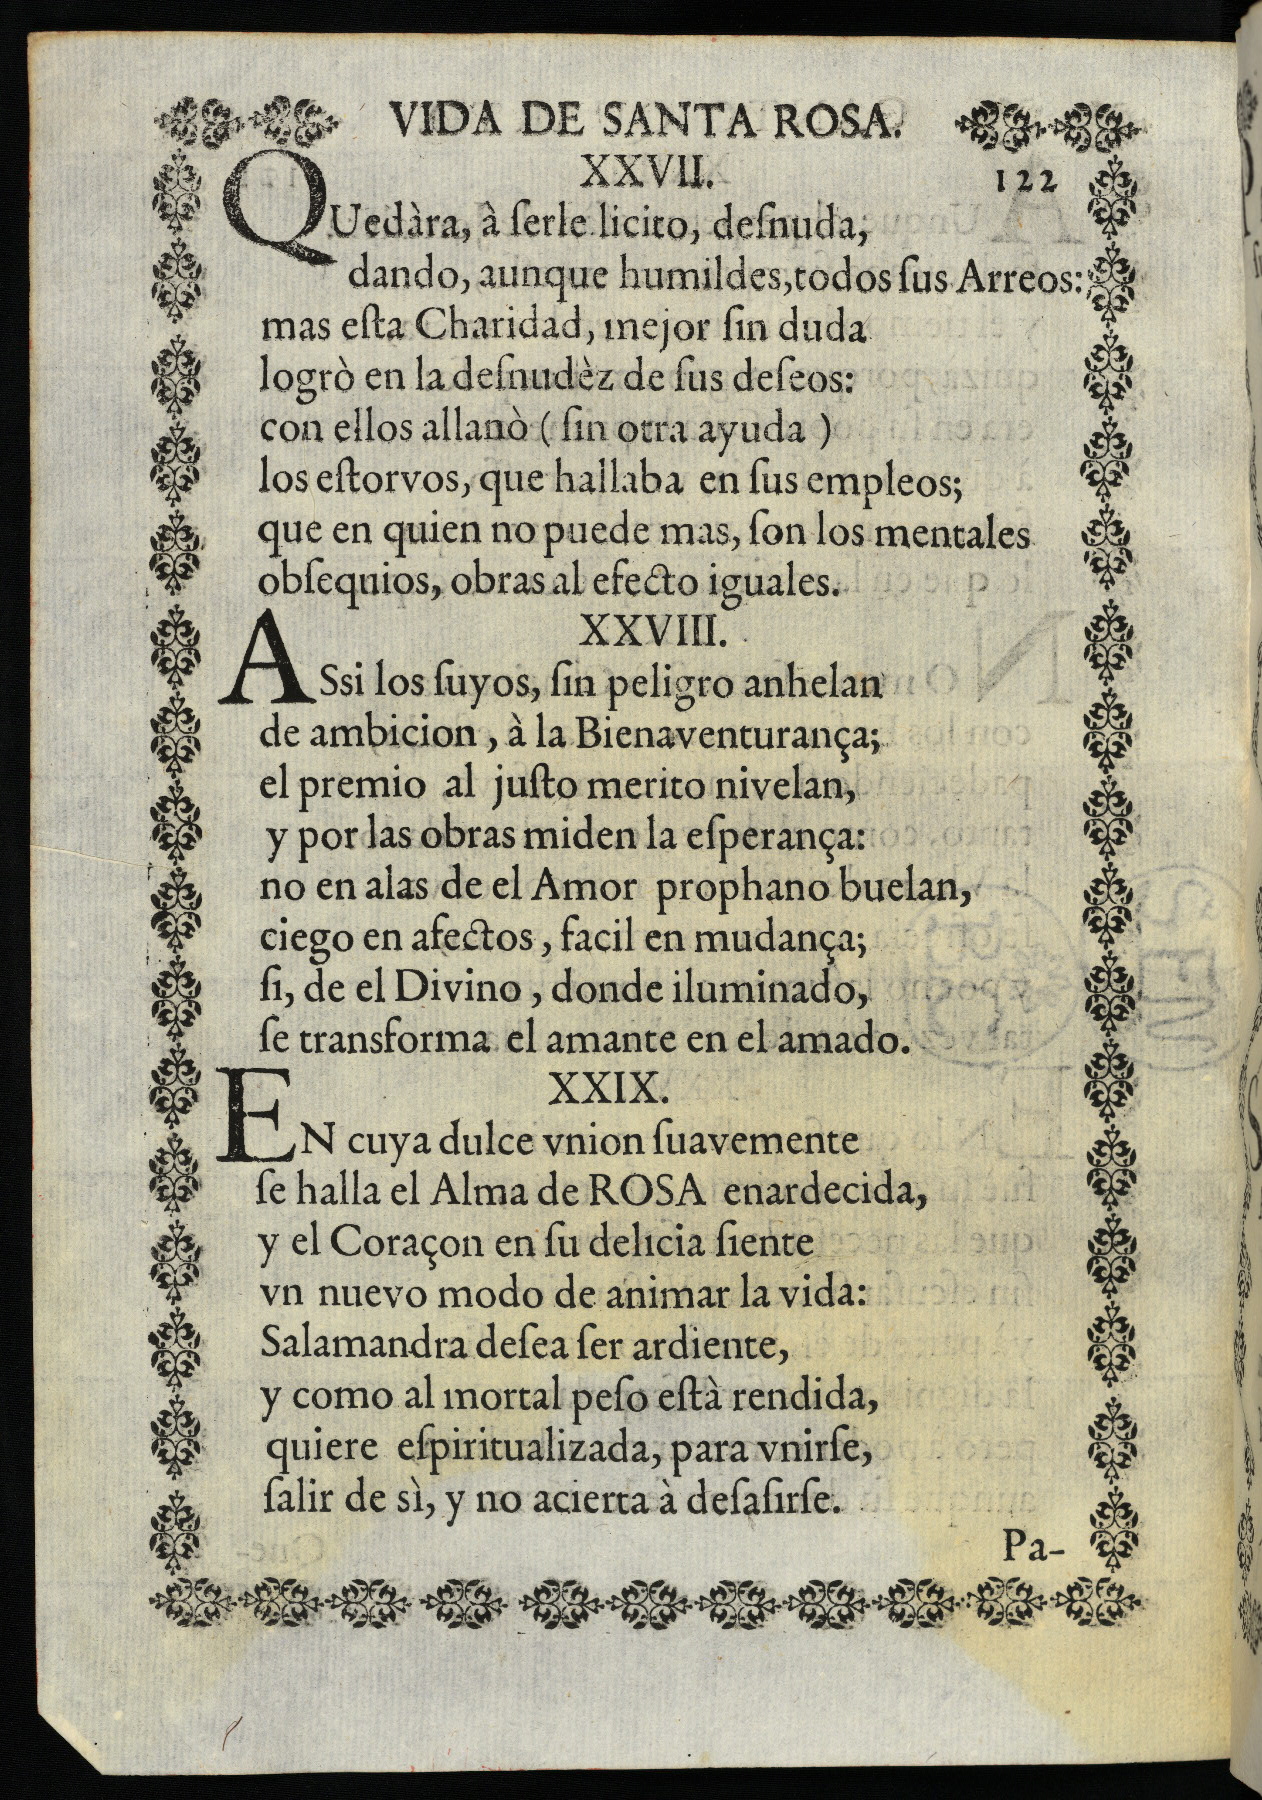 VIDA DE SANTA ROSA.
XXVII. 122
QUedàra, à ſerle licito, deſnuda,
dando, aunque humildes, todos ſus Arreos:
mas eſta Charidad, mejor ſin duda
logrò en la deſnudèz de ſus deſeos:
con ellos allanò ( ſin otra ayuda )
los eſtorvos, que hallaba en ſus empleos;
que en quien no puede mas, ſon los mentales
obſequios, obras al efecto iguales.
XXVIII.
ASsi los ſuyos, ſin peligro anhelan
de ambicion, à la Bienaventurança;
el premio al juſto merito nivelan,
y por las obras miden la eſperança:
no en alas de el Amor prophano buelan,
ciego en afectos, facil en mudança;
ſi, de el Divino, donde iluminado,
ſe transforma el amante en el amado.
XXIX.
EN cuya dulce vnion ſuavemente
ſe halla el Alma de ROSA enardecida,
y el Coraçon en ſu delicia ſiente
vn nuevo modo de animar la vida:
Salamandra deſea ſer ardiente,
y como al mortal peſo eſtà rendida,
quiere eſpiritualizada, para vnirſe,
ſalir de sì, y no acierta à deſaſirſe.
Pa-